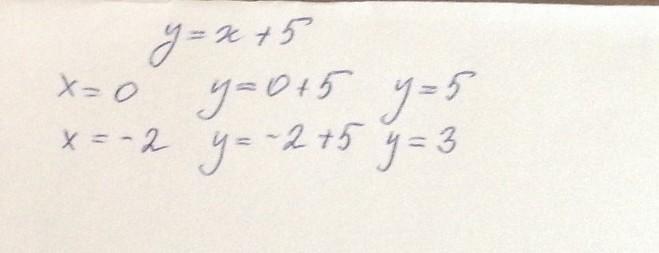 y=x+5
x=0 y=0+5 y=5
x=-2 y=-2+5 y=3